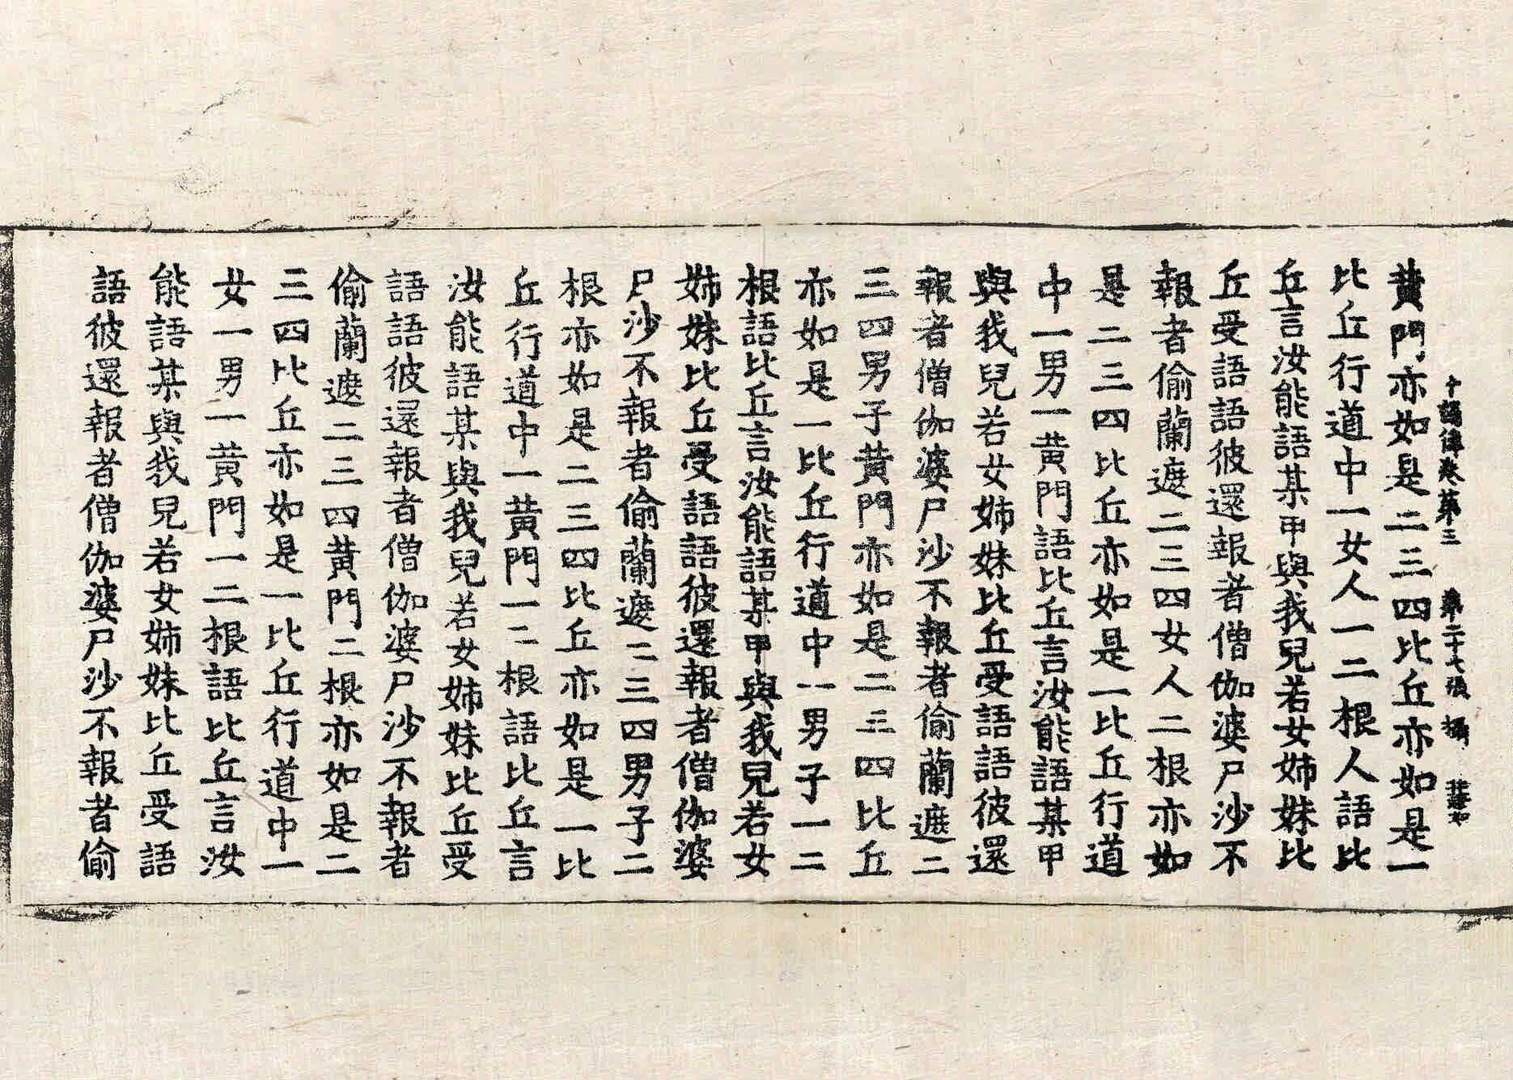 黄門亦如是二三四比丘亦如是一
十誦律卷第三 第二十七張 攝
比丘行道中一女人一二根人語比
丘言汝能語某甲與我兒若女姉妹比
丘受語語彼還報者僧伽婆尸沙不
報者偷蘭遮二三四女人二根亦如
是二三四比丘亦如是一比丘行道
中一男一黄門語比丘言汝能語某甲
與我兒若女姉妹比丘受語語彼還
報者僧伽婆尸沙不報者偷蘭遮二
三四男子黄門亦如是二三四比丘
亦如是一比丘行道中一男子一二
根語比丘言汝能語某甲與我兒若女
姉妹比丘受語語彼還報者僧伽婆
尸沙不報者偷蘭遮二三四男子二
根亦如是二三四比丘亦如是一比
丘行道中一黄門一二根語比丘言
汝能語某與我兒若女姉妹比丘受
語語彼還報者僧伽婆尸沙不報者
偷蘭遮二三四黄門二根亦如是二
三四比丘亦如是一比丘行道中一
女一男一黄門一二根語比丘言汝
能語某與我兒若女姉妹比丘受語
語彼還報者僧伽婆尸沙不報者偷